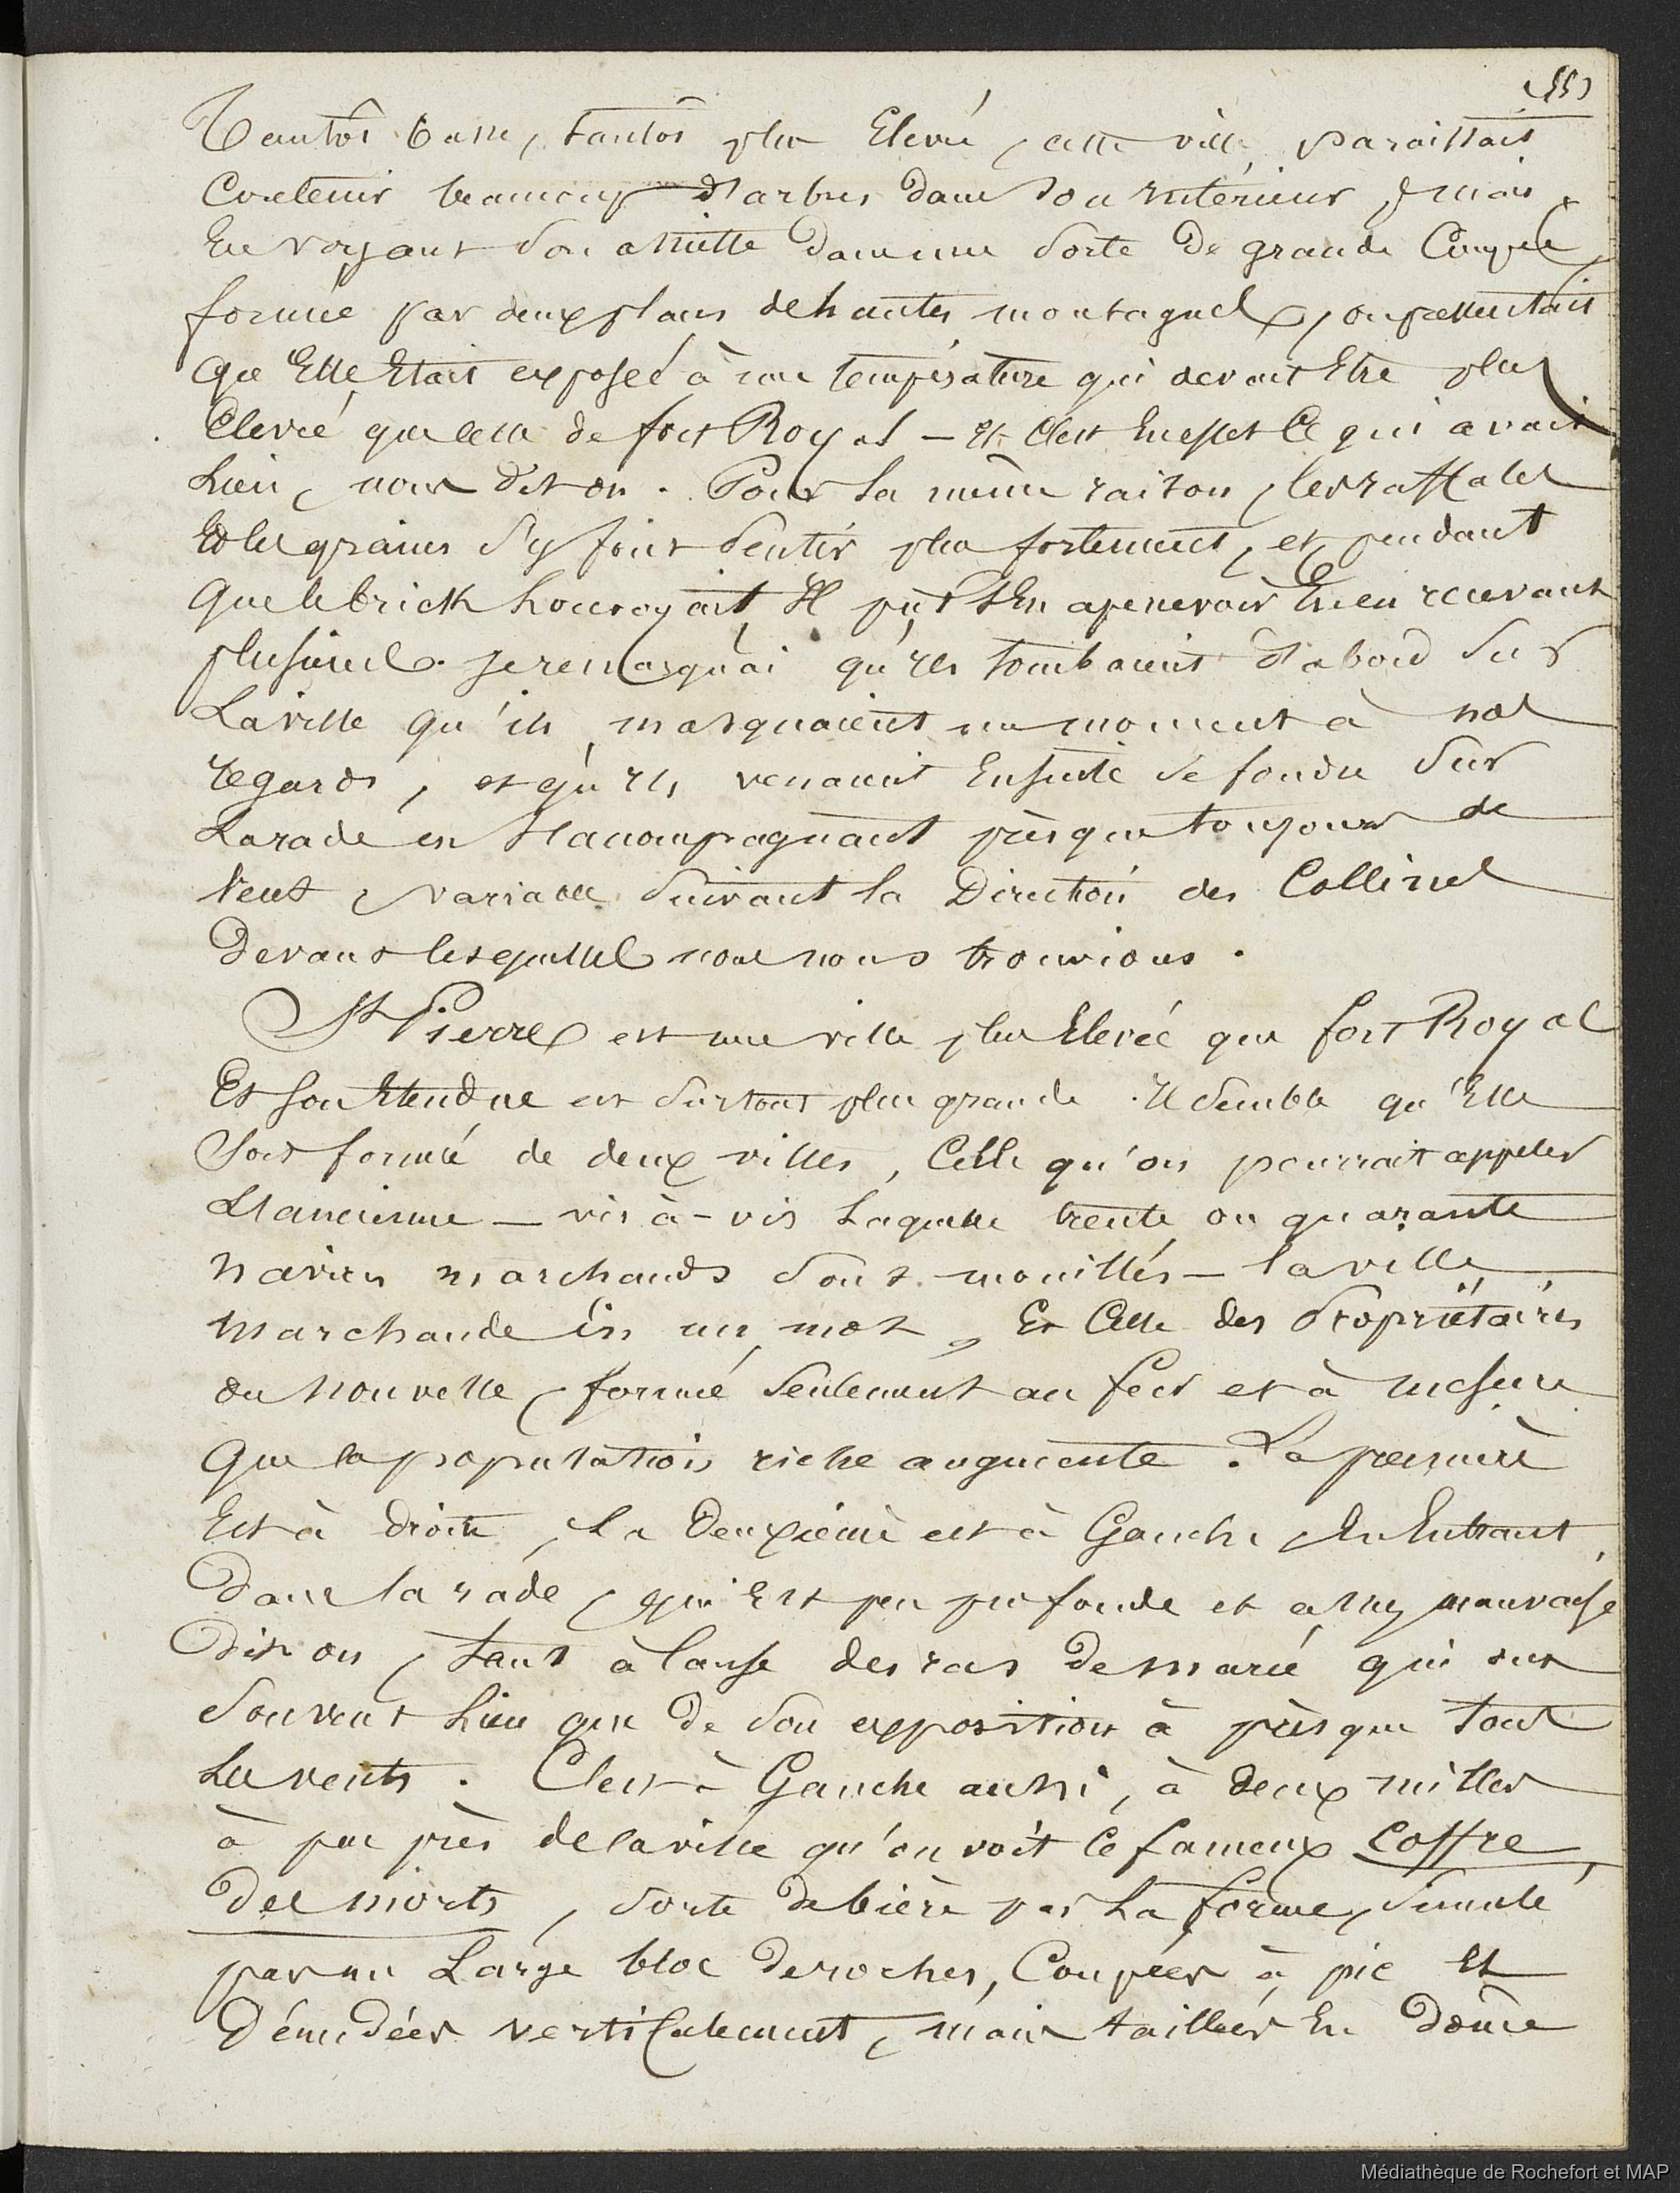 (55)
Tantôt basse, tantôt plus Elevée, cette ville paraissait
Contenir beaucoup d'arbres dans son intérieur, mais
En voyant son assiette dans une sorte de grande Coupée
formée par deux plans de hautes montagnes, on pressentait
que Elle Etait exposée à une température qui devait Etre plus
Elevée que celle de fort Royal — Et C'est En effet Ce qui avait
Lieu, nous dit on. Pour la même raison, les raffales
Et les grains s'y font sentir plus fortement, et pendant
que le brick louvoyait Il put s'En apercevoir En en recevant
plusieurs. je remarquai qu'ils tombaient d'abord sur
La ville qu'ils masquaient un moment à nos
regards, et qu'ils venaient Ensuite se fondre sur
La rade en s'accompagnant presque toujours de
Vent, variable suivant la Direction des Collines
Devant lesquelles nous nous trouvions.
St Pierre est une ville plus Elevée que fort Royal
Et son Etendue est surtout plus grande. Il semble qu'Elle
Soit formée de deux villes, Celle qu'on pourrait appeler
L'ancienne — vis à-vis Laquelle trente ou quarante
navires marchands sont mouillés — la ville
marchande En un mot, Et Celle des Propriétaires
ou Nouvelle, formée Seulement au fur et à mesure
que la population riche augmente. La première
Est à droite, La Deuxième est à Gauche, En Entrant
Dans la rade, qui Est peu profonde et assez mauvaise
Dit on, tant à Cause des ras de marée qui ont
Souvent Lieu que de son exposition à presque tous
Les vents. C'est à Gauche aussi, à deux milles
à peu près de la ville qu'on voit le fameux Coffre
Des morts, sorte de bière par La forme, simulé
par un Large bloc de roches, Coupées à pic Et
Dénudées verticalement, mais taillées En Dôme
Médiathèque de Rochefort et MAP